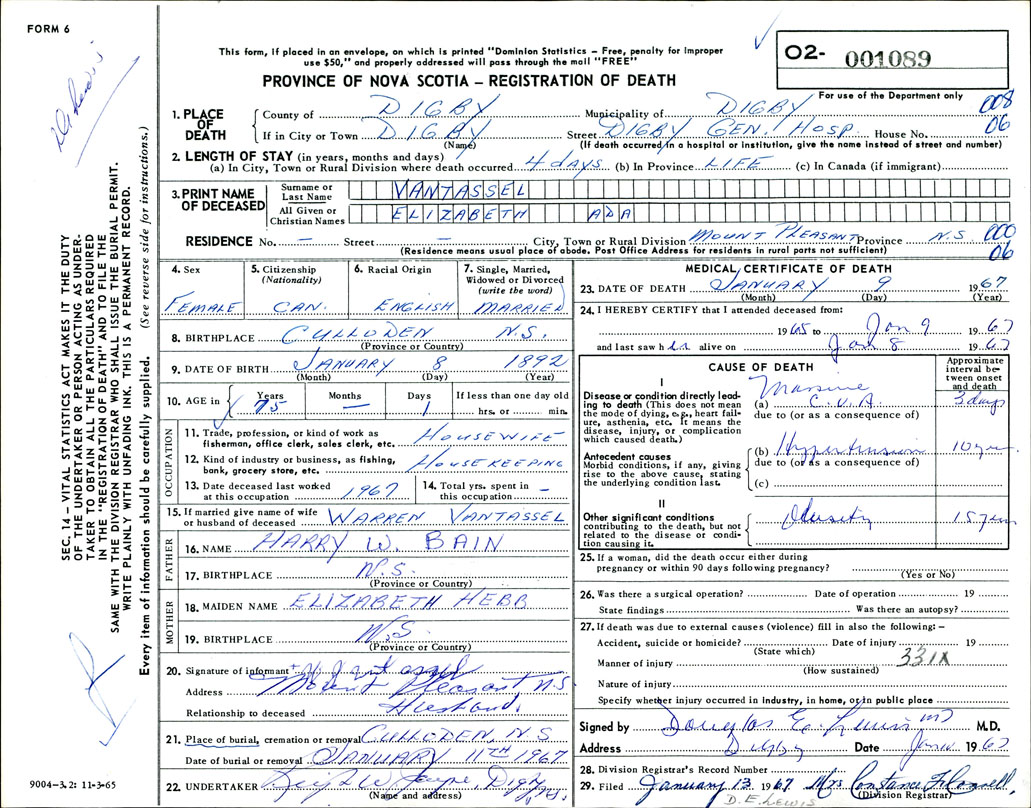 FORM 6
This form, if placed in an envelope, on which is printed "Dominion Statistics – Free, penalty for improper
use $50," and properly addressed will pass through the mail "FREE"
PROVINCE OF NOVA SCOTIA – REGISTRATION OF DEATH
O2- 001089
For use of the Department only
008
06
1. PLACE OF DEATH
County of DIGBY Municipality of DIGBY
If in City or Town DIGBY Street DIGBY GEN. HOSP. House No.
(Name) (If death occurred in a hospital or institution, give the name instead of street and number)
2. LENGTH OF STAY (in years, months and days)
(a) In City, Town or Rural Division where death occurred 4 days (b) In Province LIFE (c) In Canada (if immigrant)
3. PRINT NAME OF DECEASED
Surname or Last Name VANTASSEL
All Given or Christian Names ELIZABETH ADA
RESIDENCE No. – Street – City, Town or Rural Division MOUNT PLEASANT Province N.S. 000
06
(Residence means usual place of abode. Post Office Address for residents in rural parts not sufficient)
4. Sex FEMALE
5. Citizenship (Nationality) CAN.
6. Racial Origin ENGLISH
7. Single, Married, Widowed or Divorced (write the word) MARRIED
8. BIRTHPLACE CULLODEN N.S.
(Province or Country)
9. DATE OF BIRTH JANUARY 8 1892
(Month) (Day) (Year)
10. AGE in Years 75 Months – Days 1 If less than one day old hrs. or min.
OCCUPATION
11. Trade, profession, or kind of work as fisherman, office clerk, sales clerk, etc. HOUSEWIFE
12. Kind of industry or business, as fishing, bank, grocery store, etc. HOUSEKEEPING
13. Date deceased last worked at this occupation 1967
14. Total yrs. spent in this occupation –
15. If married give name of wife or husband of deceased WARREN VANTASSEL
FATHER
16. NAME HARRY W. BAIN
17. BIRTHPLACE N.S.
(Province or Country)
MOTHER
18. MAIDEN NAME ELIZABETH HEBB
19. BIRTHPLACE N.S.
(Province or Country)
20. Signature of informant
Address Mount Pleasant N.S
Relationship to deceased Husband.
21. Place of burial, cremation or removal CULLODEN, N S
Date of burial or removal JANUARY 11TH 1967
22. UNDERTAKER Jayne Digby N.S.
(Name and address)
MEDICAL CERTIFICATE OF DEATH
23. DATE OF DEATH JANUARY 9 1967
(Month) (Day) (Year)
24. I HEREBY CERTIFY that I attended deceased from:
1965 to Jan 9 1967
and last saw her alive on Jan 8 1967
CAUSE OF DEATH
Approximate interval between onset and death
I
Disease or condition directly leading to death (This does not mean the mode of dying, e.g., heart failure, asthenia, etc. It means the disease, injury, or complication which caused death.)
(a) Massive C.V.A. 3 days
due to (or as a consequence of)
Antecedent causes
Morbid conditions, if any, giving rise to the above cause, stating the underlying condition last.
(b) Hypertension 10 yrs.
due to (or as a consequence of)
(c)
II
Other significant conditions contributing to the death, but not related to the disease or condition causing it.
Obesity 15 yrs
25. If a woman, did the death occur either during
pregnancy or within 90 days following pregnancy?
(Yes or No)
26. Was there a surgical operation? Date of operation 19
State findings Was there an autopsy?
27. If death was due to external causes (violence) fill in also the following:–
Accident, suicide or homicide? Date of injury 19
(State which)
Manner of injury 331X
(How sustained)
Nature of injury
Specify whether injury occurred in industry, in home, or in public place
Signed by Douglas E. Lewis MD M.D.
Address Digby Date Jan 1967
28. Division Registrar's Record Number
29. Filed January 13 1967 Mrs Constance
(Division Registrar)
D.E. LEWIS
SEC. 14 – VITAL STATISTICS ACT MAKES IT THE DUTY
OF THE UNDERTAKER OR PERSON ACTING AS UNDER-
TAKER TO OBTAIN ALL THE PARTICULARS REQUIRED
IN THE "REGISTRATION OF DEATH" AND TO FILE THE
SAME WITH THE DIVISION REGISTRAR WHO SHALL ISSUE THE BURIAL PERMIT.
WRITE PLAINLY WITH UNFADING INK. THIS IS A PERMANENT RECORD.
Every item of information should be carefully supplied. (See reverse side for instructions.)
9004–3.2: 11-3-65